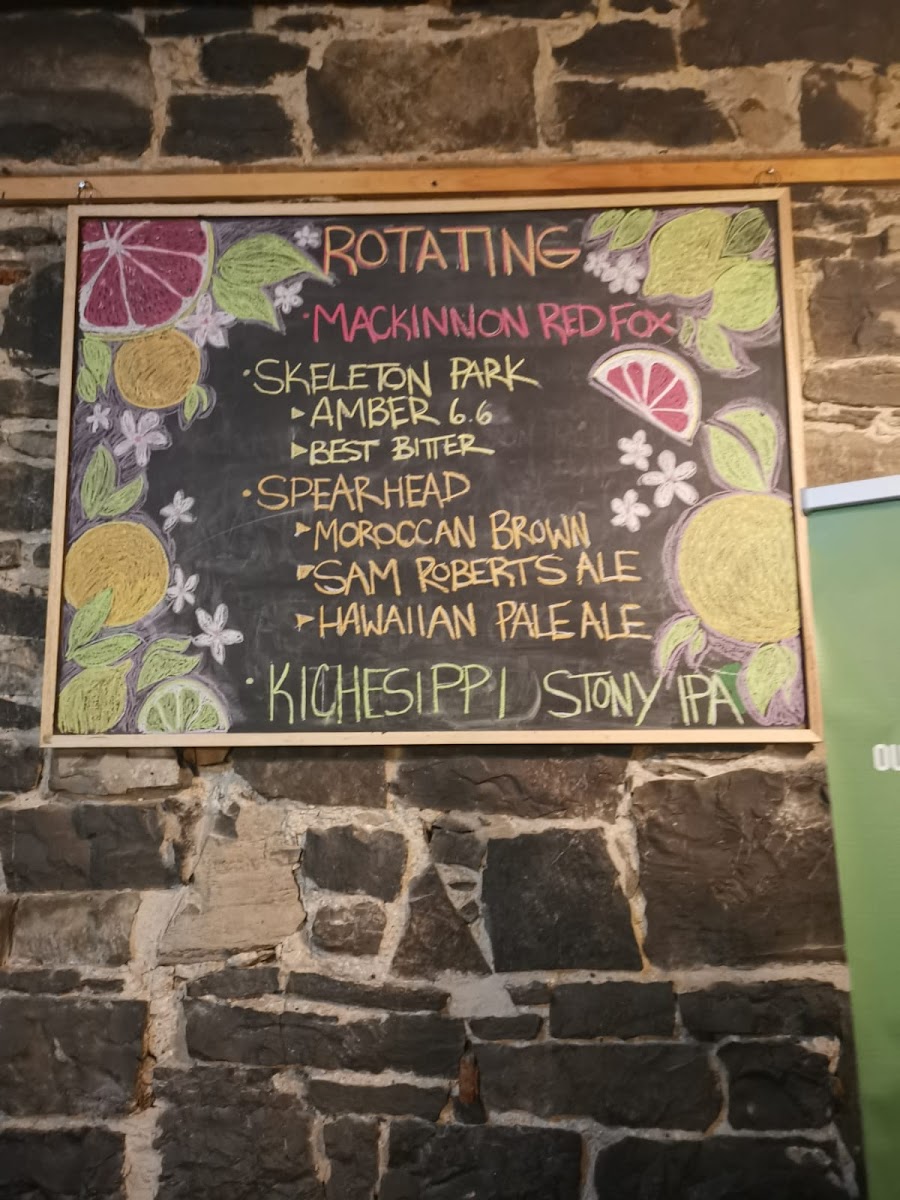 ROTATING
• MACKINNON RED FOX
• SKELETON PARK
▸ AMBER 6.6
▸ BEST BITTER
• SPEARHEAD
▸ MOROCCAN BROWN
▸ SAM ROBERTS ALE
▸ HAWAIIAN PALE ALE
• KICHESIPPI STONY IPA
OU